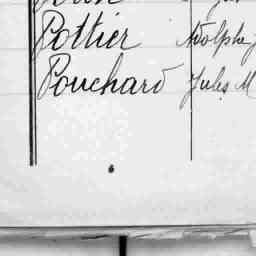 Pottier Adolphe J
Pouchard Jules M